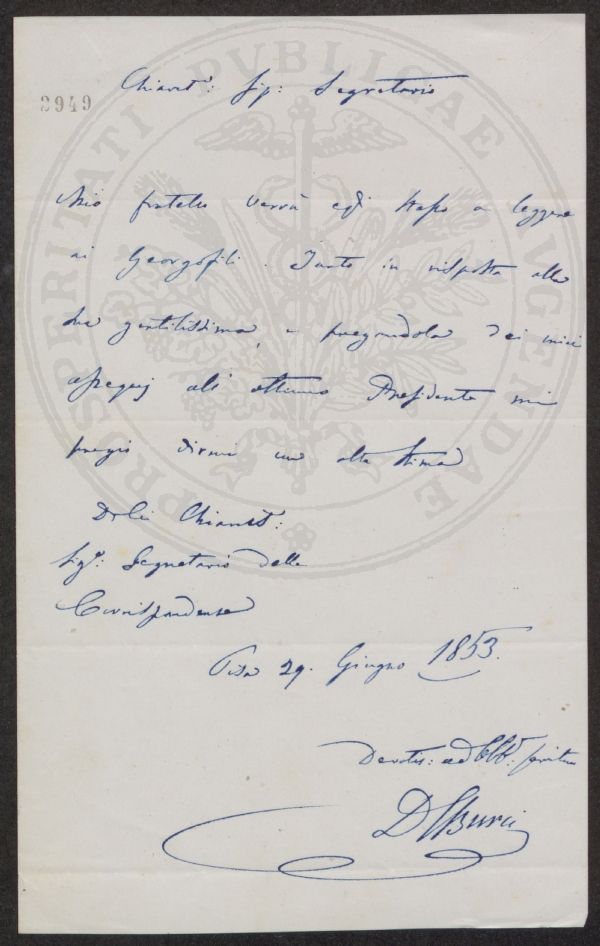 PROSPERITATI PVBLICAE AVGENDAE
2949
Chiaris.: Sig: Segretario
Mio fratello verrà egli stesso a leggere
ai Georgofili. Tanto in risposta alla
sua gentilissima, e pregandola dei miei
ossequj all' ottimo Presidente mi
pregio dirmi con alta stima
Di Lei Chiariss:
Sig.: Segretario delle
Corrispondenze
Pisa 29. Giugno 1853.
Devotis: ed Obb: servitore
D Burci